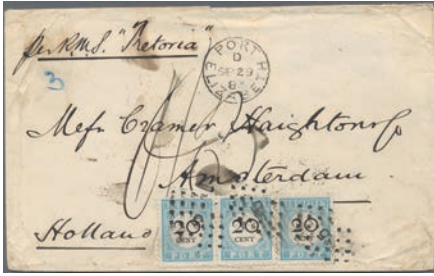 per R.M.S. "Pretoria"
PORT
ELIZABETH
D
SP 29
3
Messrs Cramer, Haighton & Co
Amsterdam
Holland
20 20 20
CENT CENT CENT
PORT PORT PORT